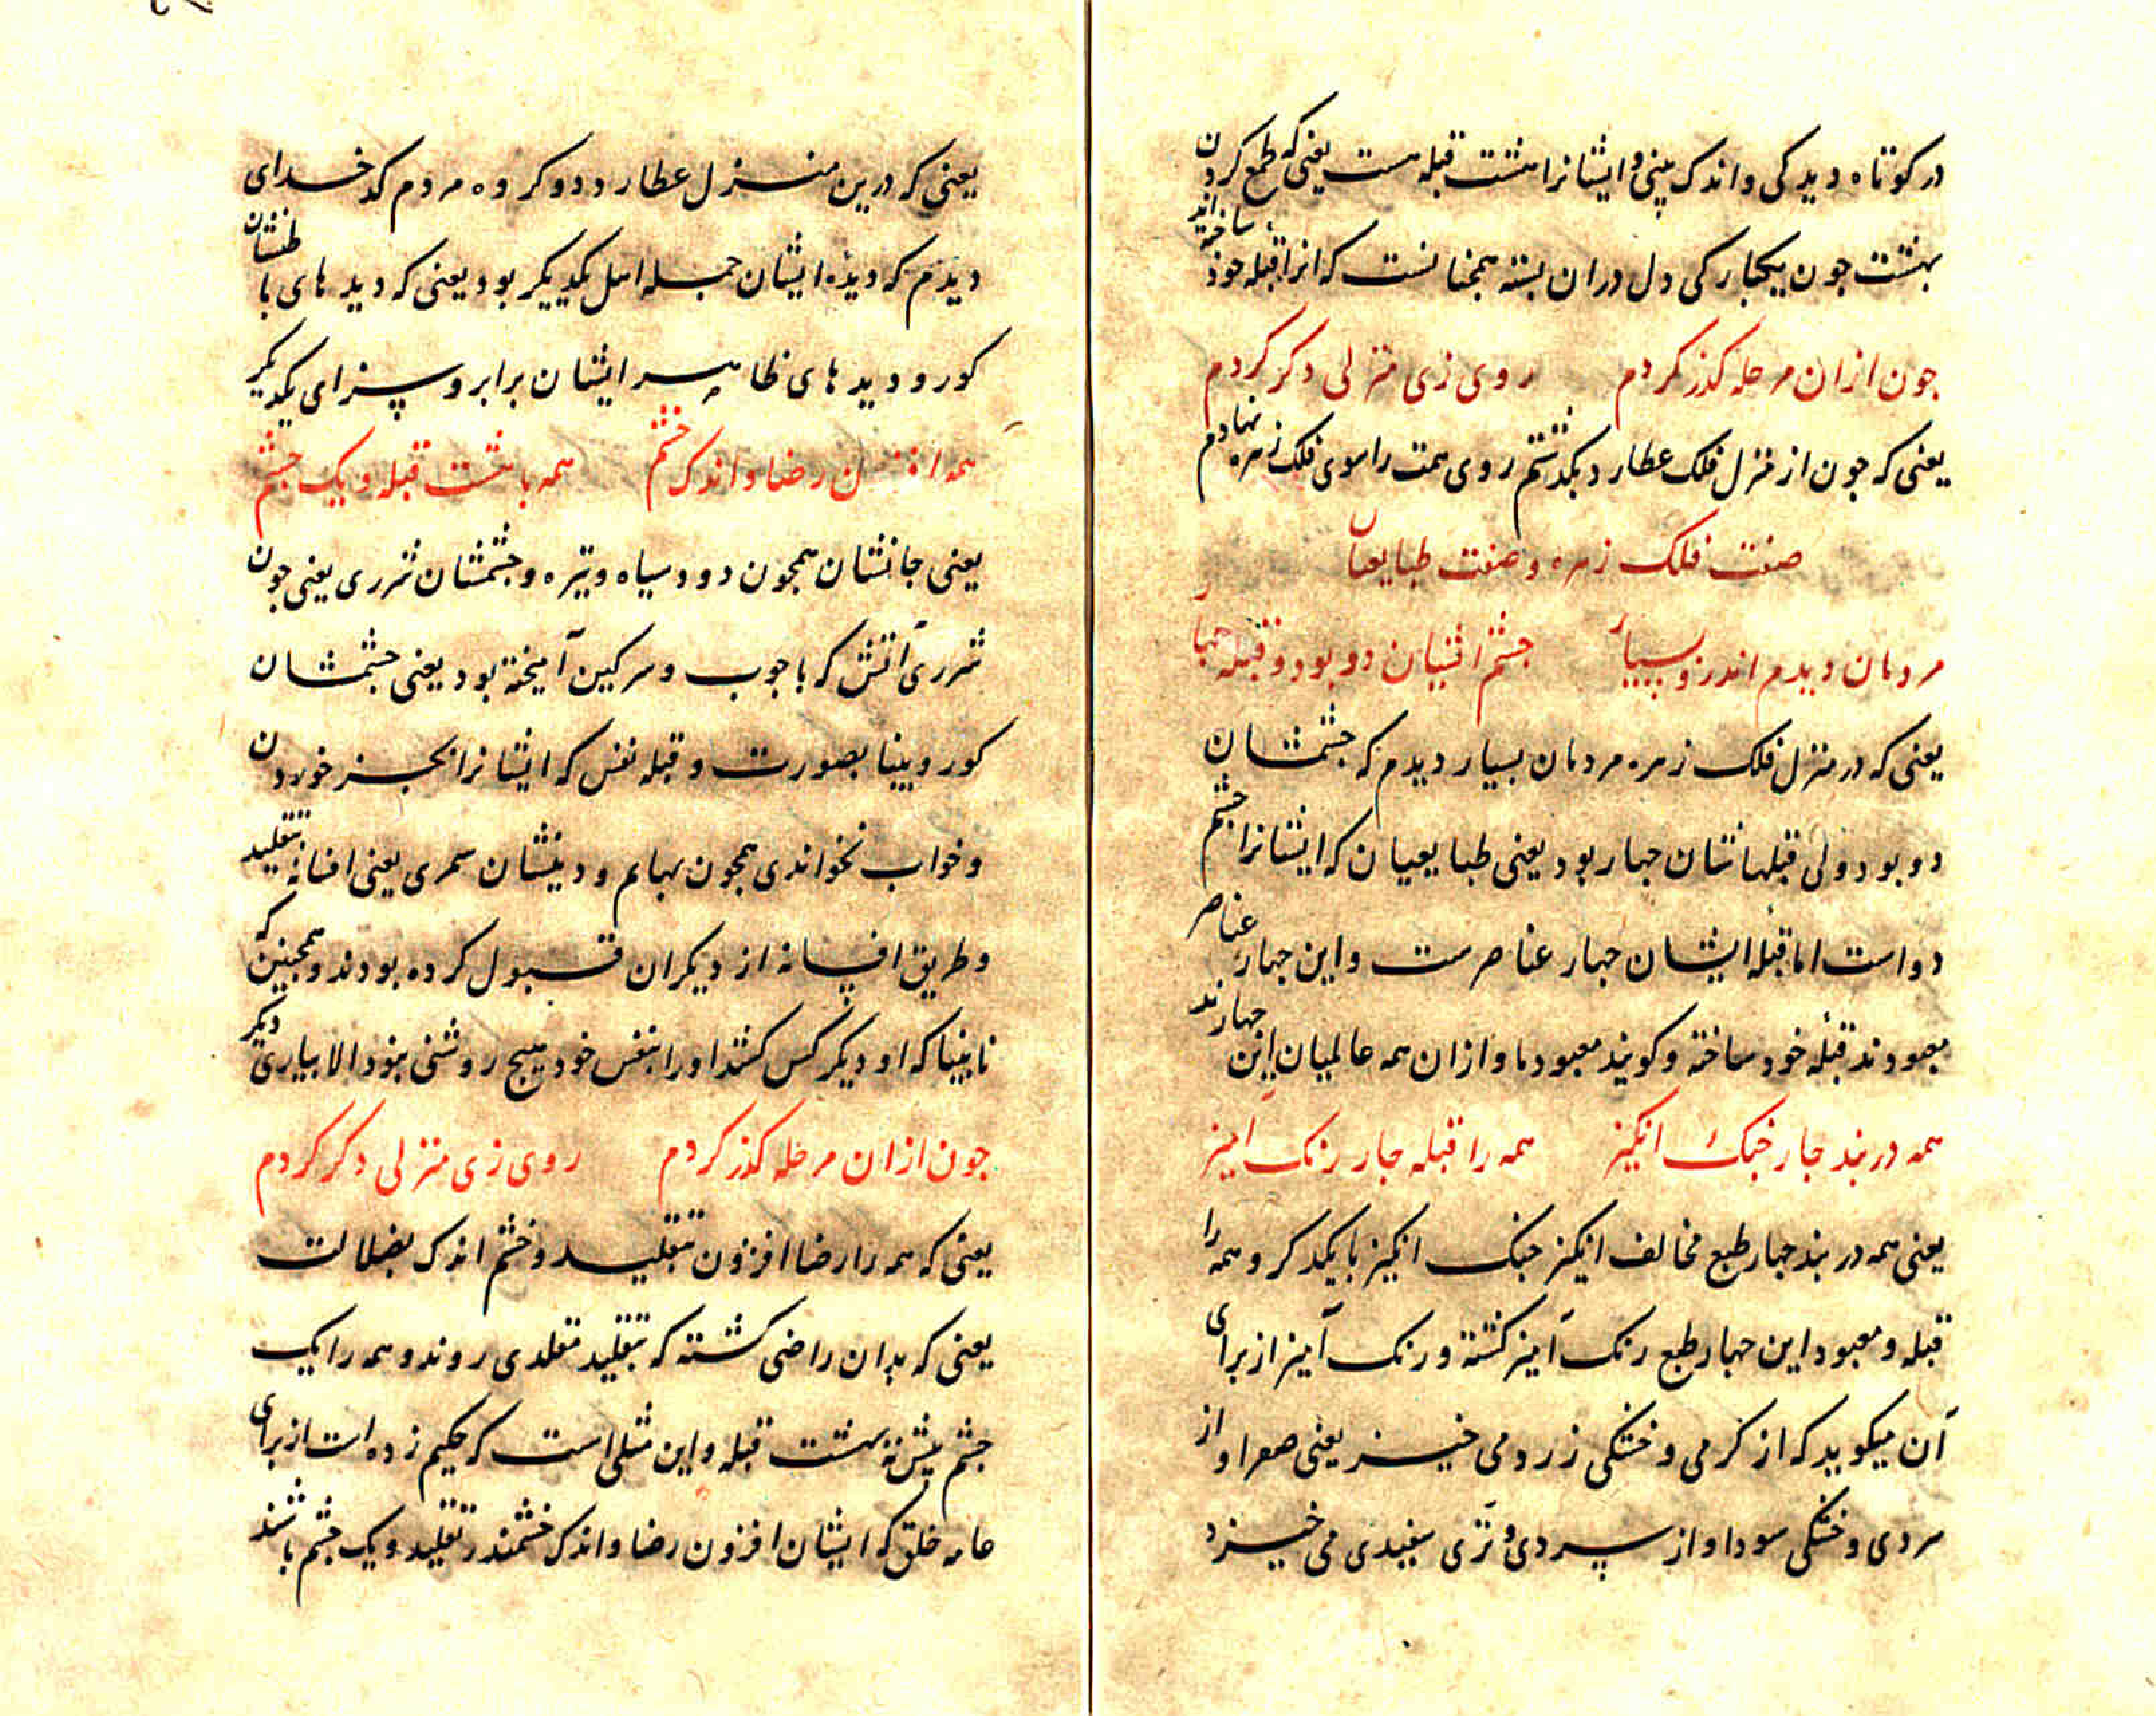 یعنی که درین منزل عطارد دو کروه مردم کد خدای
دیدم که دیده ایشان جمله اهل یکدیکر بود یعنی که دیدهای باطنشان
کور و دیدهای ظاهر ایشان برابر و سزای یکدیکر
همه افزون رضا و اندک خشم همه با هشت قبله و یک جشم
یعنی جانشان همجون دود سیاه و تیره و جشمشان شرری یعنی جون
شرری آتش که با جوب و سرکین آمیخته بود یعنی جشمشان
کور و بینا بصورت و قبله نفس که ایشانرا بجز خوردن
و خواب نخواندی همجون بهایم و دینشان سمری یعنی افسانه تقلید
و طریق افسانه از دیکران قبول کرده بودند و همجنین که
نابینا که او دیکر کس کشد او را بنفس خود هیج روشنی نبود الا بیاری دیکر
جون ازان مرحله کذر کردم روی زی منزلی دکر کردم
یعنی که همه را رضا افزون بتقلید و خشم اندک بضلالت
یعنی که بدان راضی کشته که بتقلید مقلدی روند و همه را یک
جشم پیش نه هشت قبله و این مثلی است که حکیم زده است از برای
عامه خلق که ایشان افزون رضا و اندک خشمند در تقلید و یک جشم باشند
در کوتاه دیدکی و اندک بینی و ایشانرا هشت قبله هست یعنی که طمع کردن
بهشت جون بیکبارکی دل دران بسته همجنانست که انرا قبله خود ساخته اند
جون ازان مرحله کذر کردم روی زی منزلی دکر کردم
یعنی که جون از منزل فلک عطارد بکذشتم روی همت را سوی فلک زهره نهادم
صفت فلک زهره و صفت طبایعیان
مردمان دیدم اندرو بسیار جشم ایشان دو بود و قبله جهار
یعنی که در منزل فلک زهره مردمان بسیار دیدم که جشمشان
دو بود ولی قبلهاشان جهار بود یعنی طبایعیان که ایشانرا جشم
دو است اما قبله ایشان جهار عناصرست و این جهار عناصر
معبودند قبله خود ساخته و کویند معبود ما و ازان همه عالمیان این جهارند
همه در بند جار جنک انکیز همه را قبله جار رنک آمیز
یعنی همه در بند جهار طبع مخالف انکیز جنک انکیز با یکدکر و همه را
قبله و معبود این جهار طبع رنک آمیز کشته و رنک آمیز از برای
آن میکوید که از کرمی و خشکی زردی می خیزد یعنی صفرا و از
سردی و خشکی سودا و از سردی و تری سفیدی می خیزد